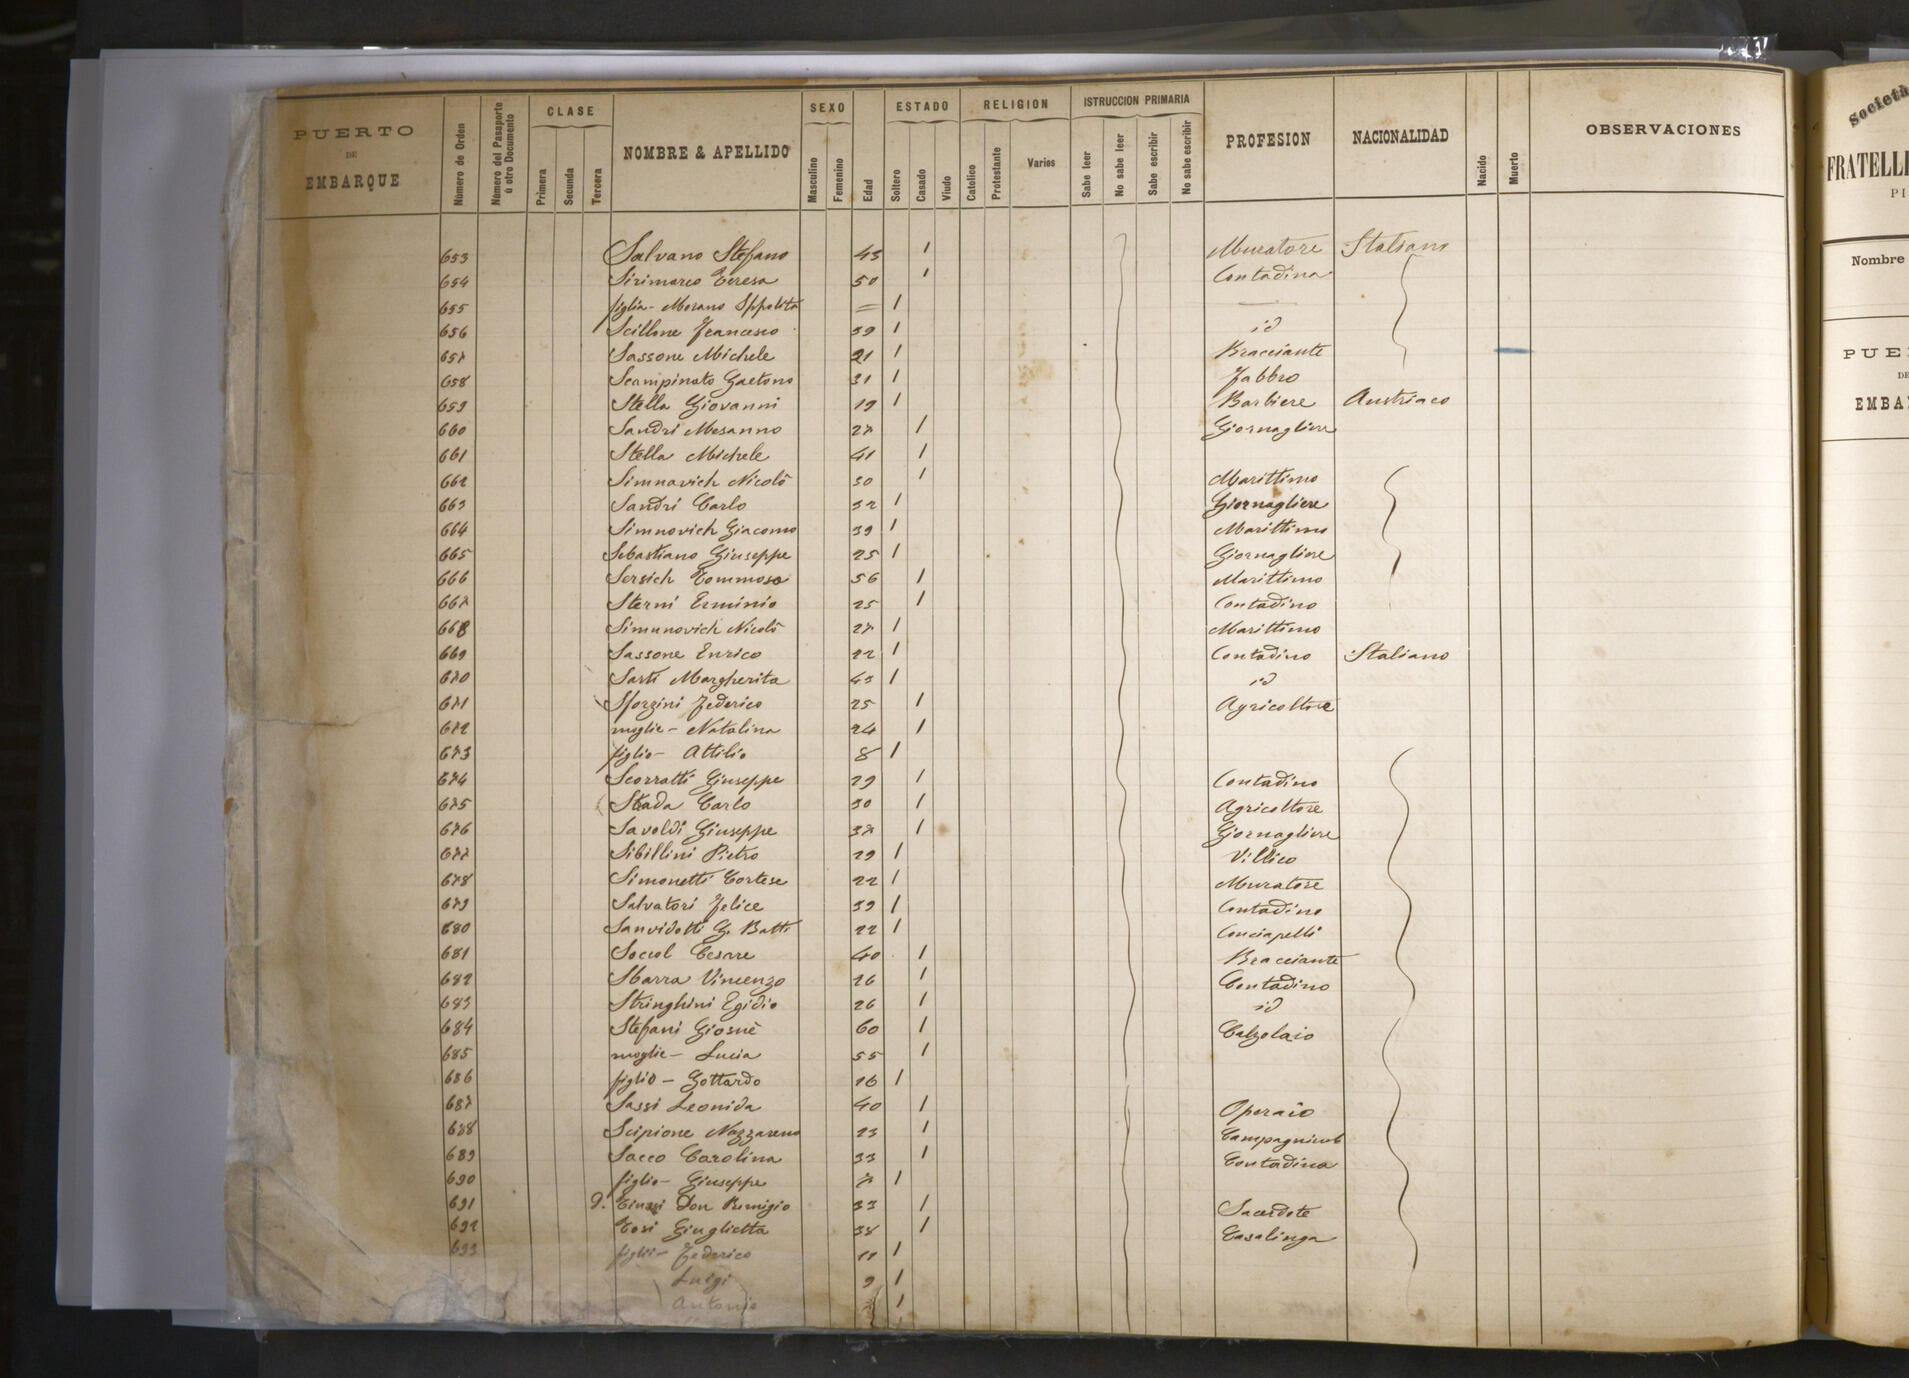 PUERTO DE EMBARQUE
Número de Orden
Número del Pasaporte ú otro Documento
CLASE
Primera
Secunda
Tercera
NOMBRE & APELLIDO
SEXO
Masculino
Femenino
Edad
ESTADO
Soltero
Casado
Viudo
RELIGION
Catolico
Protestante
Varies
ISTRUCCION PRIMARIA
Sabe leer
No sabe leer
Sabe escribir
No sabe escribir
PROFESION
NACIONALIDAD
Nacido
Muerto
OBSERVACIONES
653 Salvano Stefano 43 / Muratore Italiano
654 Sirimarco Teresa 50 / Contadina
655 figlia - Morano Ippolita = / —
656 Scillone Francesco 39 / id
657 Sassone Michele 21 / Bracciante
658 Scampinato Gaetano 31 / Fabbro
659 Stella Giovanni 19 / Barbiere Austriaco
660 Sandri Mosanno 27 / Giornagliere
661 Stella Michele 41 /
662 Simnavich Nicolò 30 / Marittimo
663 Sandri Carlo 32 / Giornagliere
664 Simnovich Giacomo 39 / Marittimo
665 Sebastiano Giuseppe 25 / Giornagliere
666 Sersich Tommaso 56 / Marittimo
667 Sterni Erminio 25 / Contadino
668 Simunovich Nicolò 27 / Marittimo
669 Sassone Enrico 22 / Contadino Italiano
670 Sarti Margherita 43 / id
671 Sforzini Federico 25 / Agricoltore
672 moglie - Natalina 24 /
673 figlio - Attilio 8 /
674 Scorratti Giuseppe 29 / Contadino
675 Stada Carlo 30 / Agricoltore
676 Savoldi Giuseppe 37 / Giornagliere
677 Sibillini Pietro 29 / Villico
678 Simonetti Cortese 22 / Muratore
679 Salvatori Felice 39 / Contadino
680 Sanvidotti G. Batti 22 / Conciapelli
681 Soccol Cesare 40 / Bracciante
682 Sbarra Vincenzo 26 / Contadino
683 Stringhini Egidio 26 / id
684 Stefani Giosuè 60 / Calzolaio
685 moglie - Lucia 55 /
686 figlio - Gottardo 16 /
687 Sassi Leonida 40 / Operaio
688 Scipione Nazzareno 23 / Campagnuolo
689 Sacco Carolina 33 / Contadina
690 figlio - Giuseppe 7 /
691 Don Remigio 33 / Sacerdote
692 Tosi Giuglietta 38 / Casalinga
693 figli - Federico 11 /
Luigi 9 /
Antonio /
Società
FRATELLI
PI
Nombre
PUE
DE
EMBA